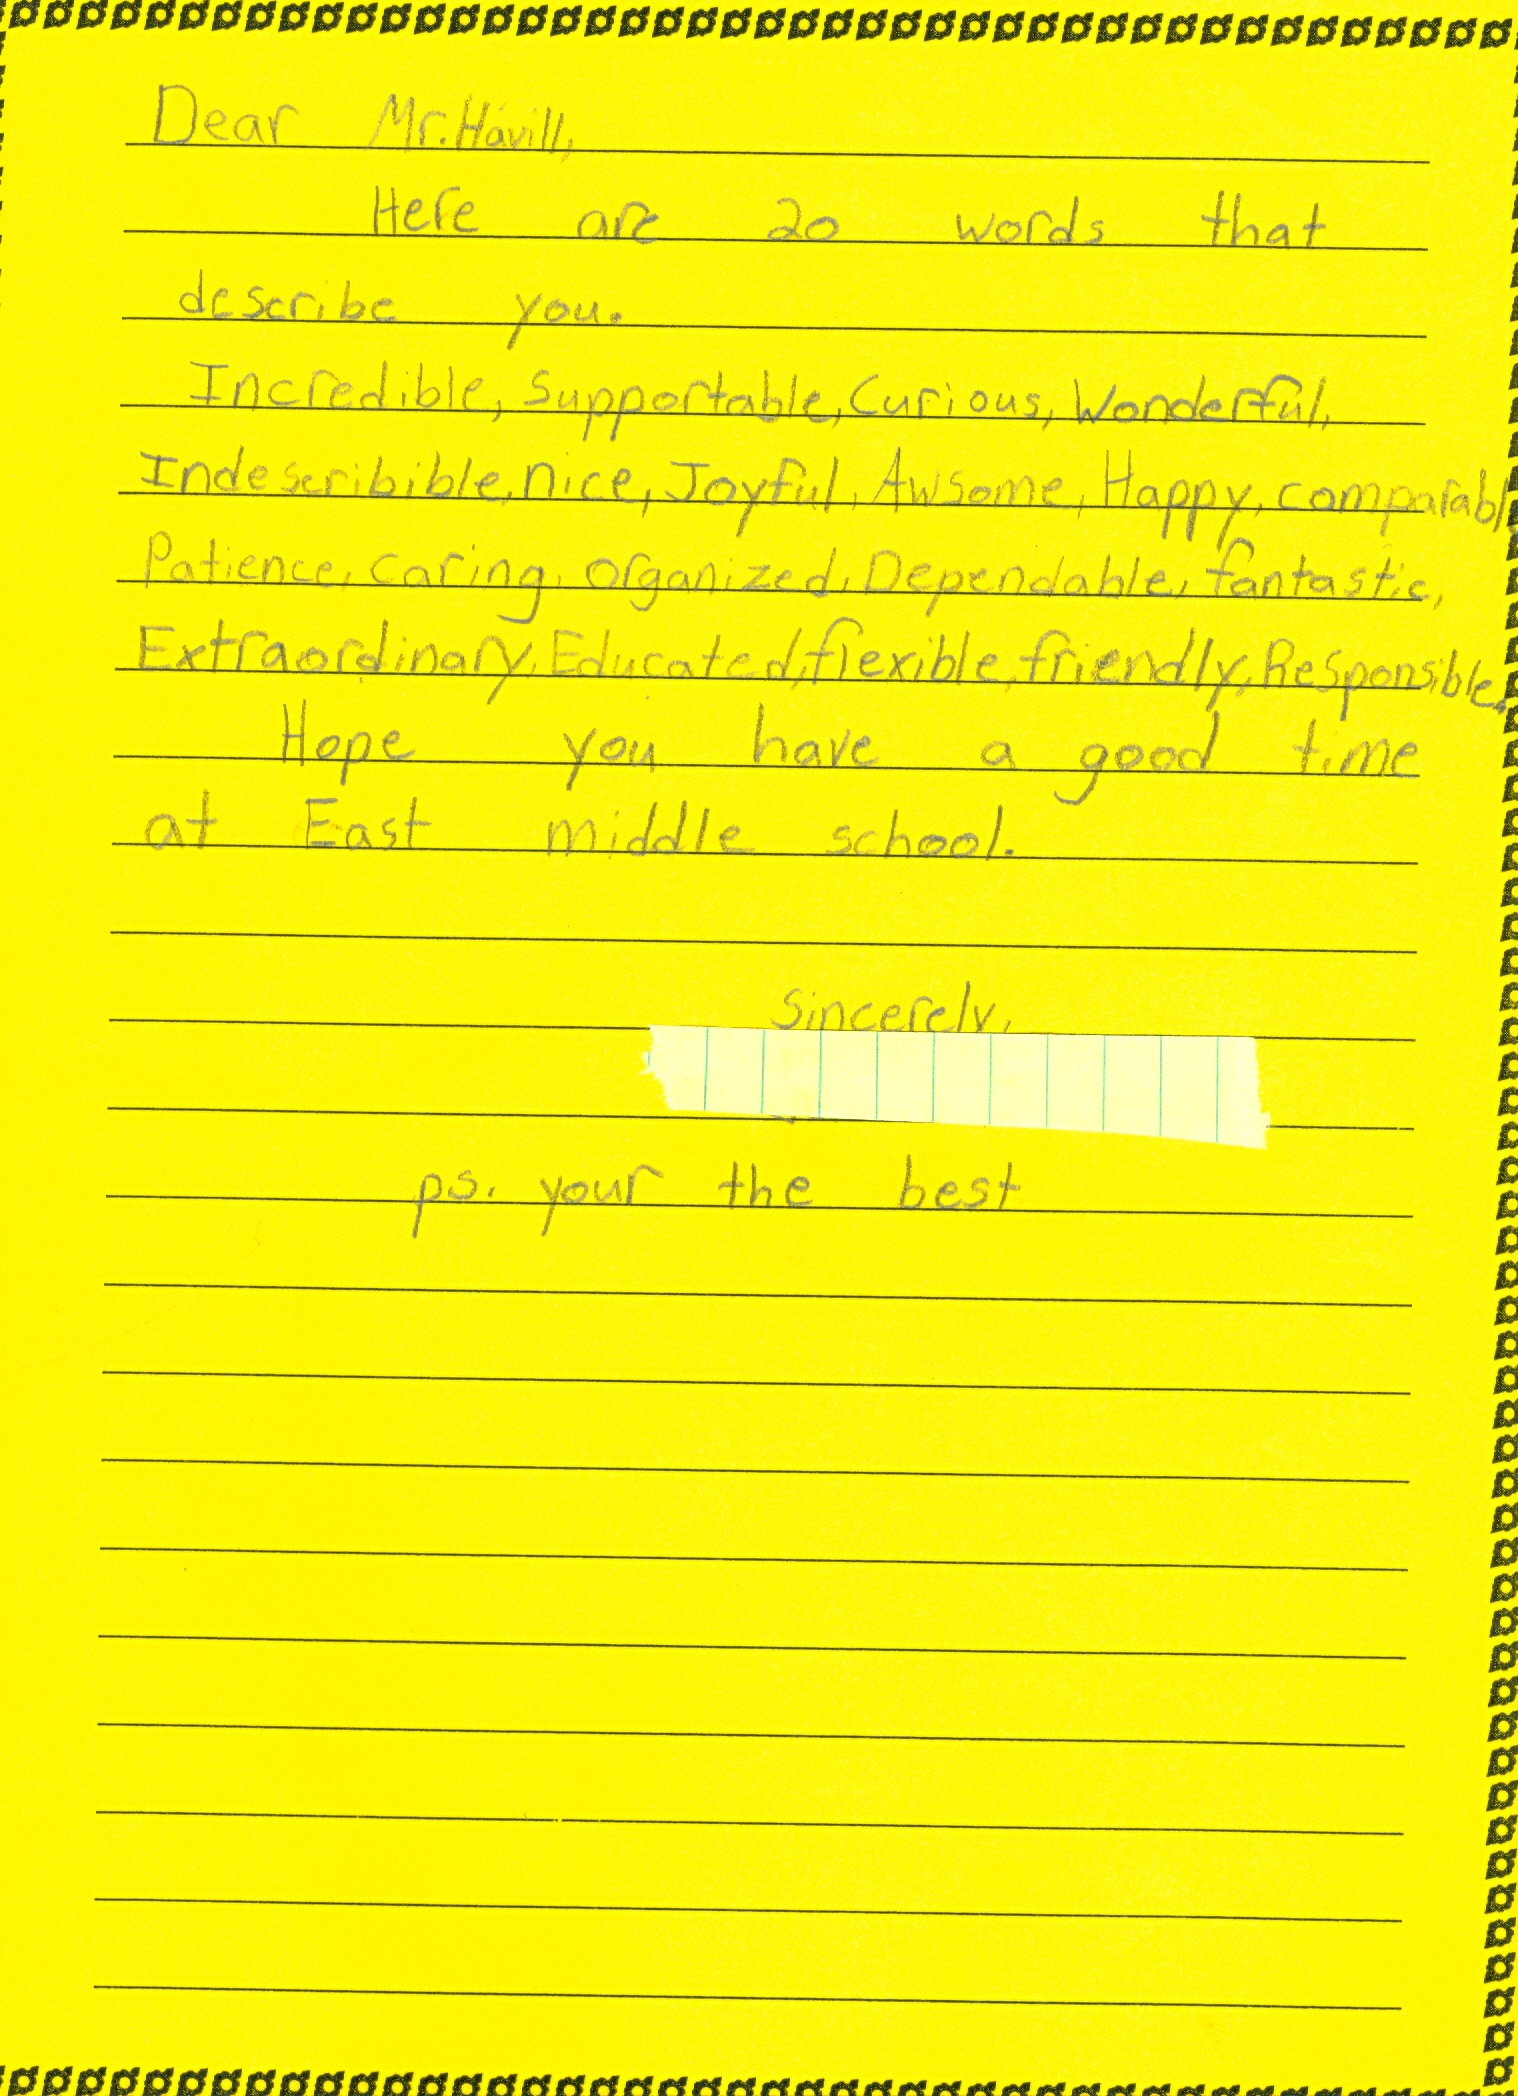 Dear Mr. Havill,
Here are 20 words that
describe you.
Incredible, Supportable, Curious, Wonderful,
Indescribible, nice, Joyful, Awsome, Happy, comparabl
Patience, caring, organized, Dependable, fantastic,
Extraordinary, Educated, flexible, friendly, Responsible.
Hope you have a good time
at East middle school.
Sincerely,
ps. your the best